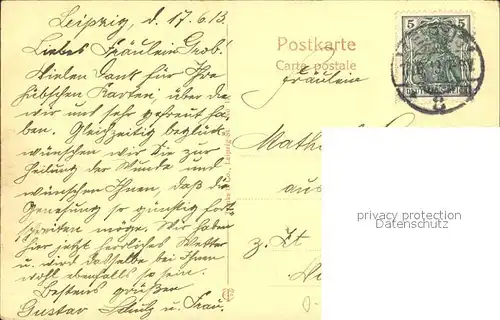 Leipzig, d. 17.6.13.
Liebes Fräulein Grob!
Vielen Dank für Ihre
hübschen Karten, über die
wir uns sehr gefreut ha-
ben. Gleichzeitig beglück-
wünschen wir Sie zur
Heilung der Wunde und
wünschen Ihnen, daß die
Genesung so günstig fort-
schreiten möge. Wir haben
hier jetzt herrliches Wetter
u. wird dasselbe bei Ihnen
wohl ebenfalls so sein.
Bestens grüßen
Gustav u. Frau.
Postkarte
Carte postale
Fräulein
aus
z. Zt
5 5
privacy protection
Datenschutz